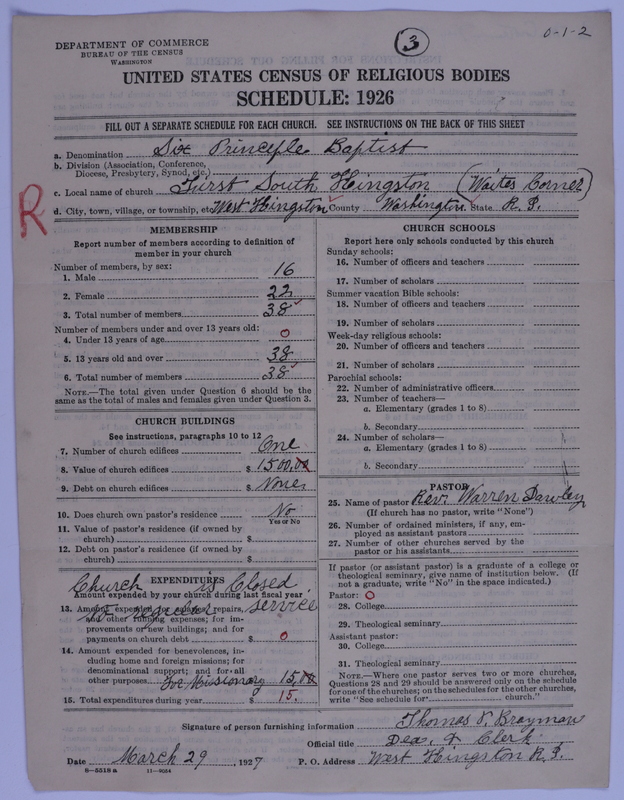 3
0-1-2
DEPARTMENT OF COMMERCE
BUREAU OF THE CENSUS
WASHINGTON
UNITED STATES CENSUS OF RELIGIOUS BODIES
SCHEDULE: 1926
FILL OUT A SEPARATE SCHEDULE FOR EACH CHURCH. SEE INSTRUCTIONS ON THE BACK OF THIS SHEET
a. Denomination Six Principle Baptist
b. Division (Association, Conference, Diocese, Presbytery, Synod, etc.)
c. Local name of church First South Kingston (Waites Corner)
R
d. City, town, village, or township, etc. West Kingston County Washington State R. I.
MEMBERSHIP
Report number of members according to definition of
member in your church
Number of members, by sex:
1. Male 16
2. Female 22
3. Total number of members 38
Number of members under and over 13 years old:
4. Under 13 years of age 0
5. 13 years old and over 38
6. Total number of members 38
NOTE.—The total given under Question 6 should be the
same as the total of males and females given under Question 3.
CHURCH BUILDINGS
See instructions, paragraphs 10 to 12
7. Number of church edifices One
8. Value of church edifices $ 1500.00
9. Debt on church edifices $ None
10. Does church own pastor's residence No
Yes or No
11. Value of pastor's residence (if owned by
church) $
12. Debt on pastor's residence (if owned by
church) $
EXPENDITURES
Church is Closed
Amount expended by your church during last fiscal year
for regular service
13. Amount expended for salaries, repairs,
and other running expenses; for im-
provements or new buildings; and for
payments on church debt $ 0
14. Amount expended for benevolences, in-
cluding home and foreign missions; for
denominational support; and for all
other purposes for Missionary 15.00
15. Total expenditures during year $ 15.
CHURCH SCHOOLS
Report here only schools conducted by this church
Sunday schools:
16. Number of officers and teachers
17. Number of scholars
Summer vacation Bible schools:
18. Number of officers and teachers
19. Number of scholars
Week-day religious schools:
20. Number of officers and teachers
21. Number of scholars
Parochial schools:
22. Number of administrative officers
23. Number of teachers—
a. Elementary (grades 1 to 8)
b. Secondary
24. Number of scholars—
a. Elementary (grades 1 to 8)
b. Secondary
PASTOR
25. Name of pastor Rev. Warren Dawley
(If church has no pastor, write "None")
26. Number of ordained ministers, if any, em-
ployed as assistant pastors
27. Number of other churches served by the
pastor or his assistants
If pastor (or assistant pastor) is a graduate of a college or
theological seminary, give name of institution below. (If
not a graduate, write "No" in the space indicated.)
Pastor: 0
28. College
29. Theological seminary
Assistant pastor:
30. College
31. Theological seminary
NOTE.—Where one pastor serves two or more churches,
Questions 28 and 29 should be answered only on the schedule
for one of the churches; on the schedules for the other churches,
write "See schedule for church."
Signature of person furnishing information Thomas T. Brayman
Official title Dea. & Clerk
Date March 29, 1927 P. O. Address West Kingston R. I.
8—5518 a 11—9034